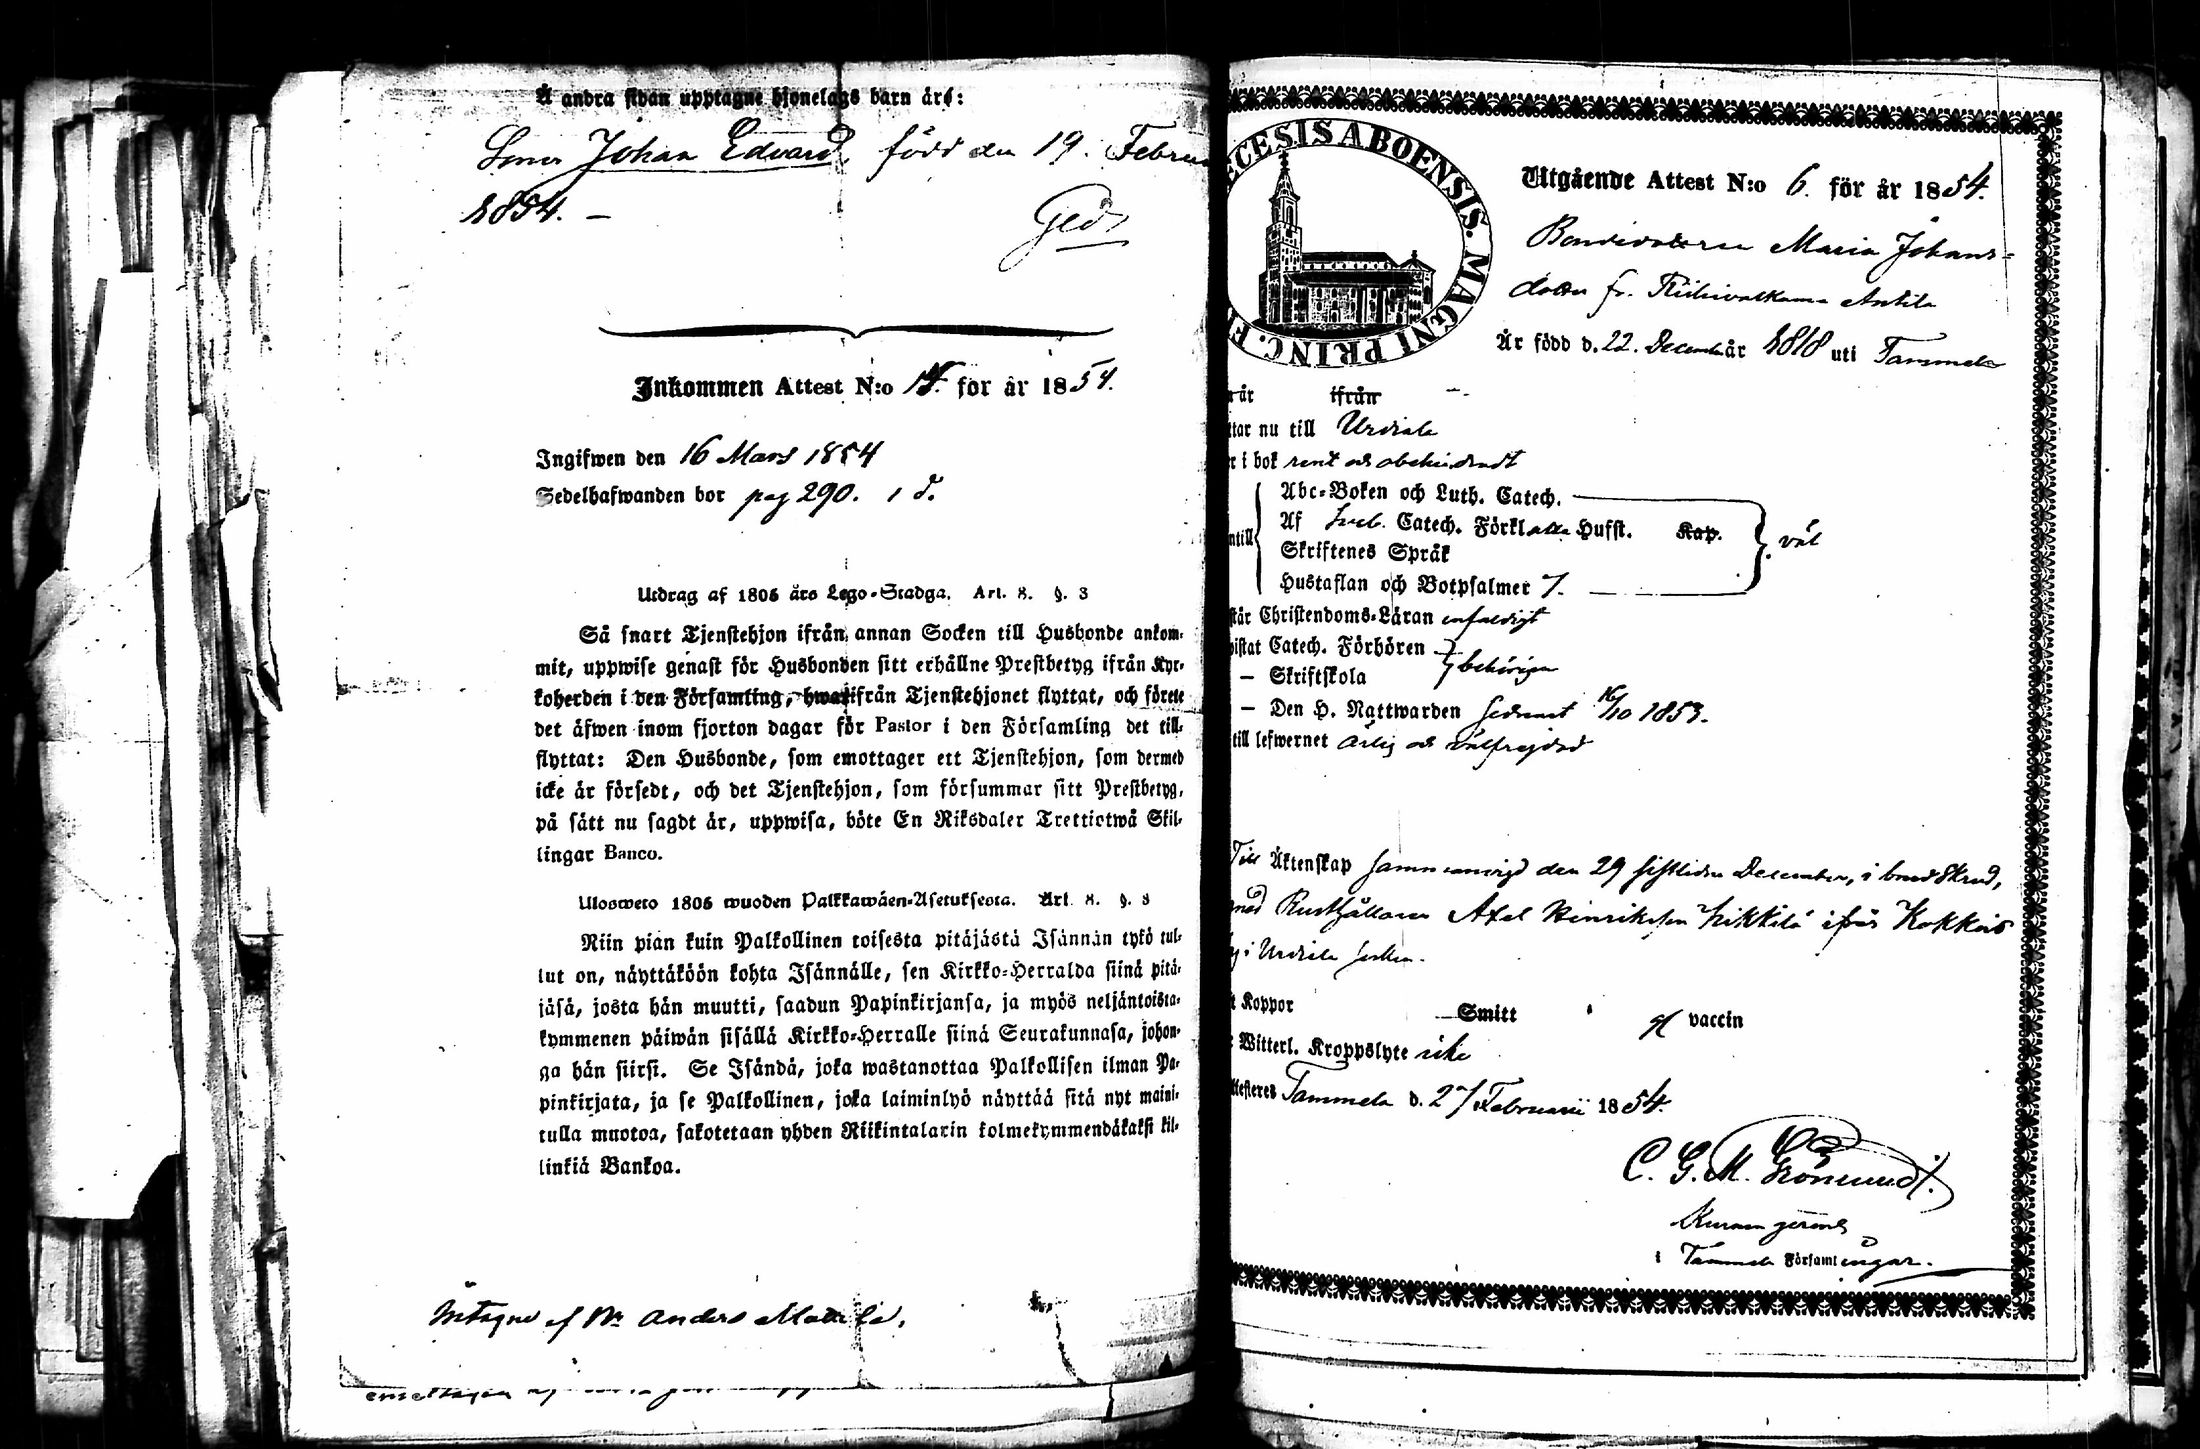 Å andra sidan upptagne hjonelags barn äro:
Sonen Johan Edvard, född den 19. Februa
1854. —
Inkommen Attest N:o för år 1854.
Ingifwen den 16 Mars 1854
Sedelhafwanden bor pag 290. 1 d.
Utdrag af 1805 års Lego-Stadga. Art. 8. §. 3
Så snart Tjenstehjon ifrån annan Socken till Husbonde ankom-
mit, uppwise genast för Husbonden sitt erhållne Prestbetyg ifrån Kyr-
koherden i den Församling, hwarifrån Tjenstehjonet flyttat, och förete
det äfwen inom fjorton dagar för Pastor i den Församling det till-
flyttat: Den Husbonde, som emottager ett Tjenstehjon, som dermed
icke är försedt, och det Tjenstehjon, som försummar sitt Prestbetyg,
på sätt nu sagdt är, uppwisa, böte En Riksdaler Trettiotwå Skil-
lingar Banco.
Ulosweto 1805 wuoden Palkkawäen-Asetuksesta. Art. 8. §. 3
Niin pian kuin Palkollinen toisesta pitäjästä Isännän tykö tul-
lut on, näyttäköön kohta Isännälle, sen Kirkko-Herralda siinä pitä-
jäsä, josta hän muutti, saadun Papinkirjansa, ja myös neljäntoista-
kymmenen päiwän sisällä Kirkko-Herralle siinä Seurakunnasa, johon-
ga hän siirsi. Se Isändä, joka wastanottaa Palkollisen ilman Pa-
pinkirjata, ja se Palkollinen, joka laiminlyö näyttää sitä nyt maini-
tulla muotoa, sakotetaan yhden Riikintalarin kolmekymmendäkaksi kil-
linkiä Bankoa.
af Anders
ECESIS ABOENSIS. MAGNI PRINC. F
Utgående Attest N:o 6. för år 1854.
Bondedottren Maria Johans-
dotter fr. Riihivalkama Anttila
Är född d. 22. December år 1818 uti Tammela
år ifrån —
tar nu till Urdiala
r i bok rent och obehindradt
ntill Abc-Boken och Luth. Catech.
Af Sveb. Catech. Förkl alla Hufst. Kap. väl
Skriftenes Språk
Hustaflan och Botpsalmer 7.
står Christendoms-Läran enfaldigt
istat Catech. Förhören
— Skriftskola behörigen
— Den H. Nattwarden sednast 16/10 1853.
till lefwernet ärlig och välfrejdad
Till Äktenskap sammanvigd den 29 sistlidne December, i brudskrud,
med Rusthållaren Axel Henriksson Heikkilä ifrån Kokkois
by i Urdiala Socken.
t Koppor Smitt gl vaccin
Witterl. Kroppslyte icke
ttesteres Tammela d. 27 Februarii 1854.
C. G. M. Grönlund.
i Tammela Församlingar.